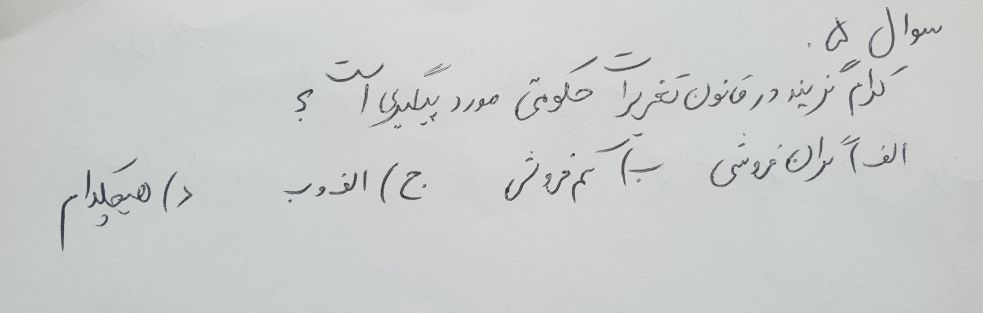 سوال ۵.
کدام گزینه در قانون تعزیرات حکومتی مورد پیگیری است ؟
الف) گران فروشی ب) کم فروشی ج) الف و ب د) هیچکدام